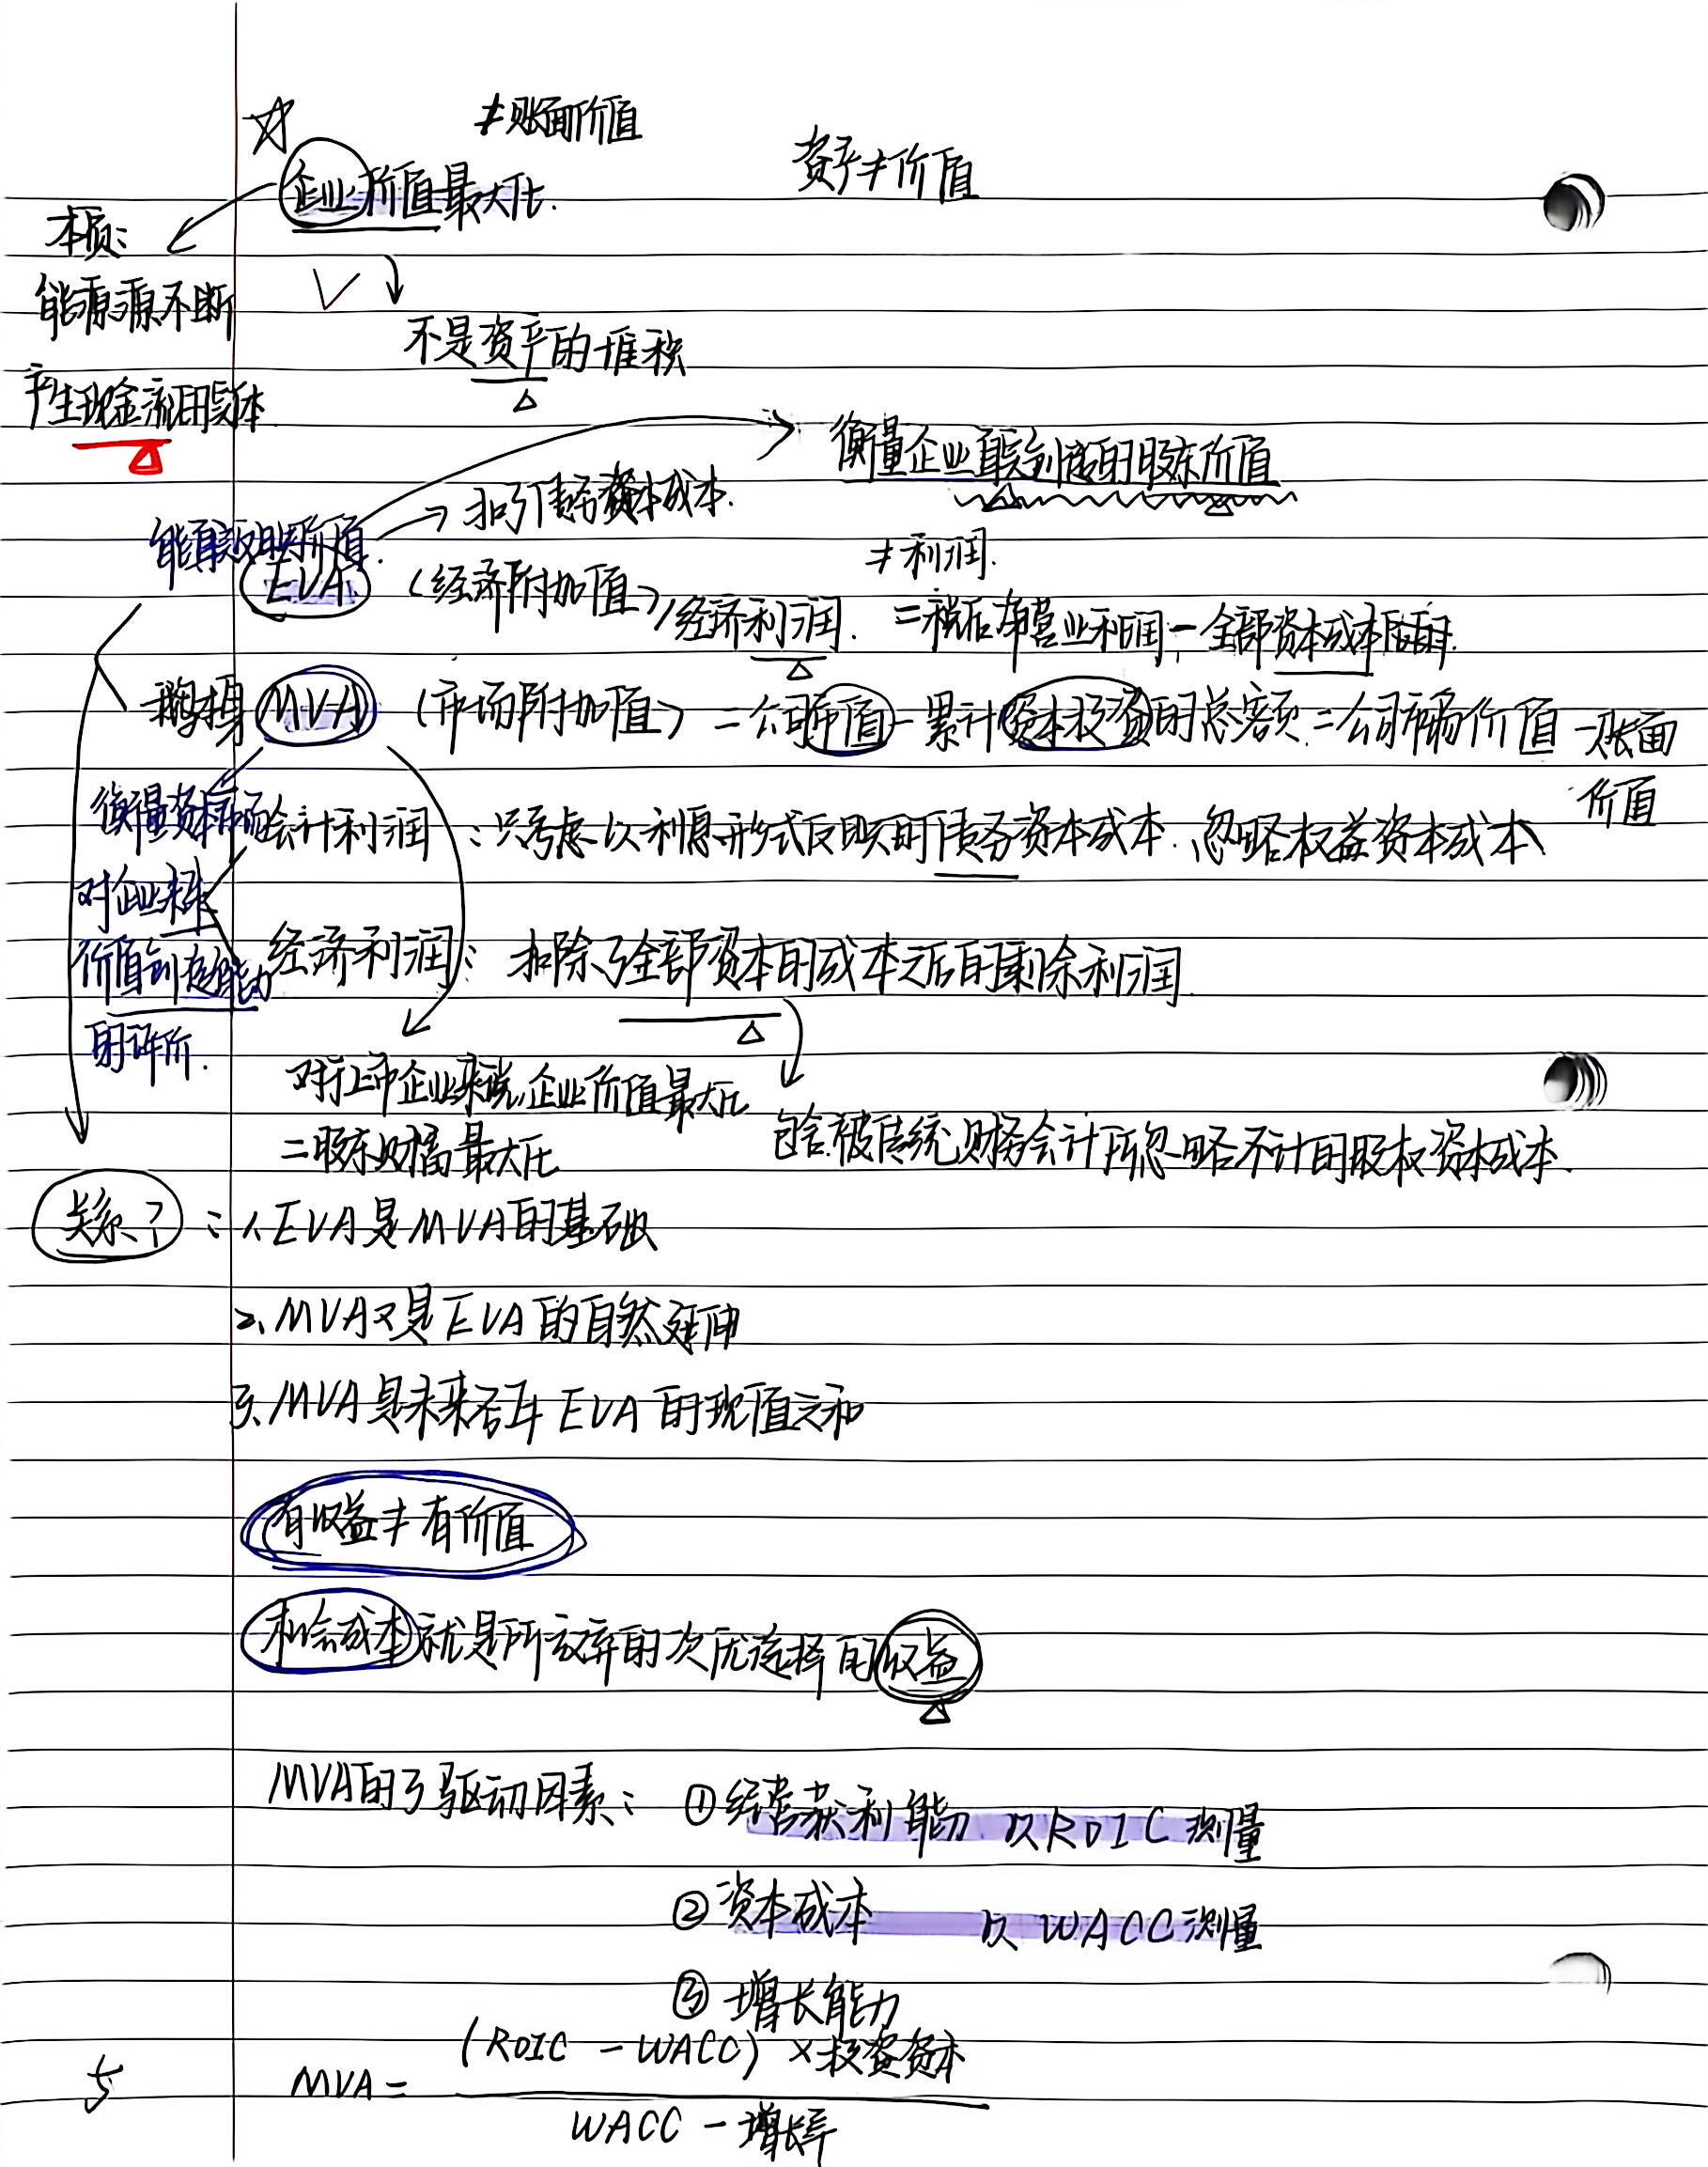 ≠账面价值
企业价值最大化.
资产≠价值
本质:
能源源不断
产生现金流的载体
不是资产的堆积
衡量企业真实创造的股东价值
→扣了债务资本成本.
能真实反映价值.
EVA (经济附加值) / 经济利润. =税后净营业利润-全部资本成本费用.
≠利润.
MVA (市场附加值) =公司市值-累计资本投资的总额=公司市场价值-账面
价值
衡量资本市场
对企业未来
价值创造能力
的评价.
会计利润:只考虑以利息形式反映的债务资本成本.忽略权益资本成本
经济利润:扣除了全部资本的成本之后的剩余利润
对于上市企业来说,企业价值最大化
=股东财富最大化
包含被传统财务会计所忽略不计的股权资本成本.
关系?:1、EVA是MVA的基础
2、MVA又是EVA的自然延伸
3、MVA是未来各年EVA的现值之和
有收益≠有价值
机会成本就是所放弃的次优选择的收益
MVA的3驱动因素:①经营获利能力 以ROIC测量
②资本成本 以WACC测量
③增长能力
MVA= (ROIC-WACC)×投资资本
WACC-增长率
5